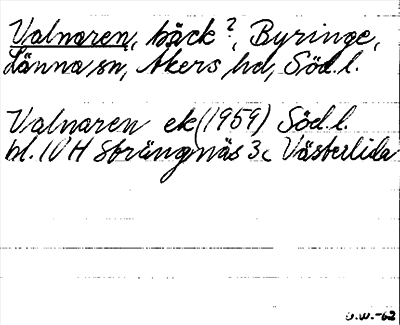 Valnaren, bäck?, Byringe,
Länna sn, Åkers hd, Söd. l.
Valnaren ek (1959) Söd. l.
bl. 10 H Strängnäs 3c Västerlida
O.W.-62